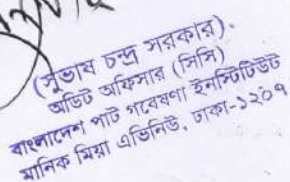 (সুভাষ চন্দ্র সরকার)
অডিট অফিসার (সিসি)
বাংলাদেশ পাট গবেষণা ইনস্টিটিউট
মানিক মিয়া এভিনিউ, ঢাকা-১২০৭